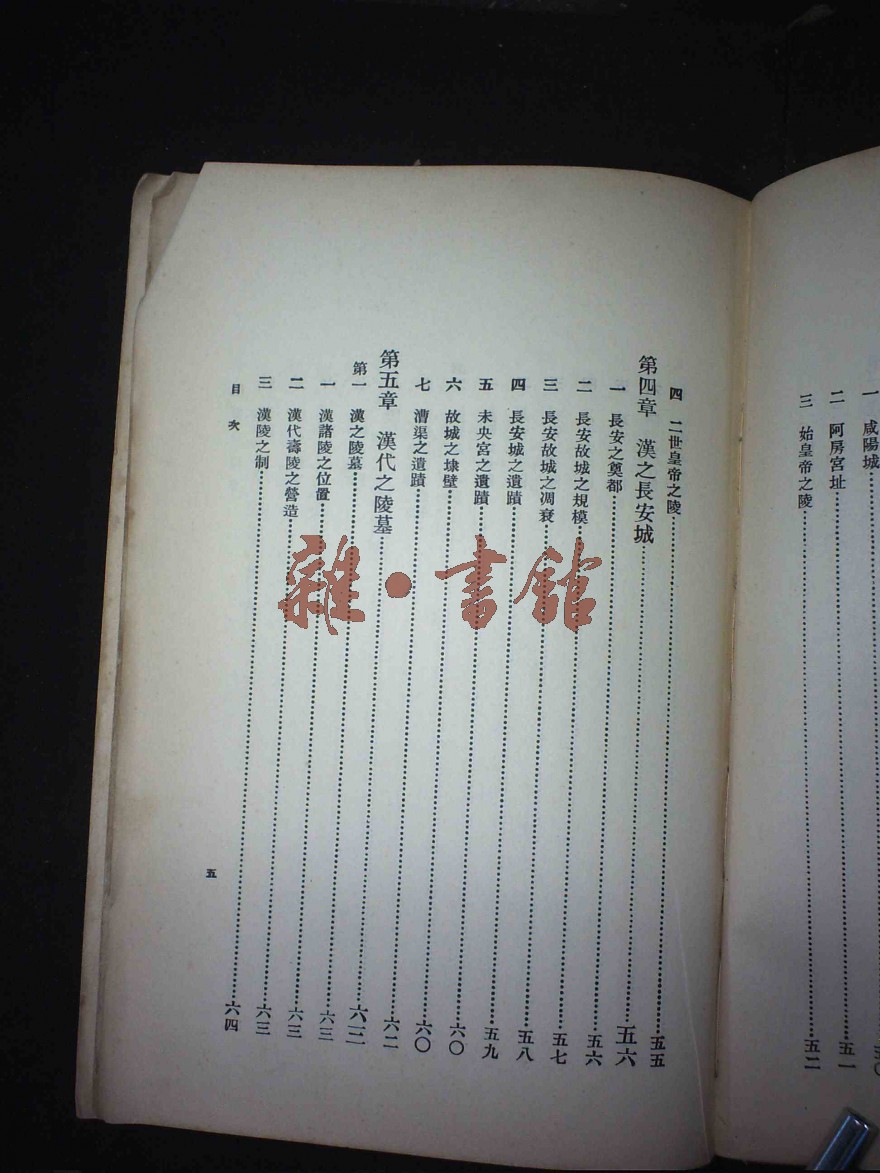 一 咸陽城……五〇
二 阿房宮址……五一
三 始皇帝之陵……五二
四 二世皇帝之陵……五五
第四章 漢之長安城……五六
一 長安之奠都……五六
二 長安故城之規模……五七
三 長安故城之凋衰……五八
四 長安城之遺蹟……五九
五 未央宮之遺蹟……六〇
六 故城之埭壁……六〇
七 漕渠之遺蹟……六二
第五章 漢代之陵墓……六二
第一 漢之陵墓……六三
一 漢諸陵之位置……六三
二 漢代壽陵之營造……六三
三 漢陵之制……六四
目次
五
雜·書館